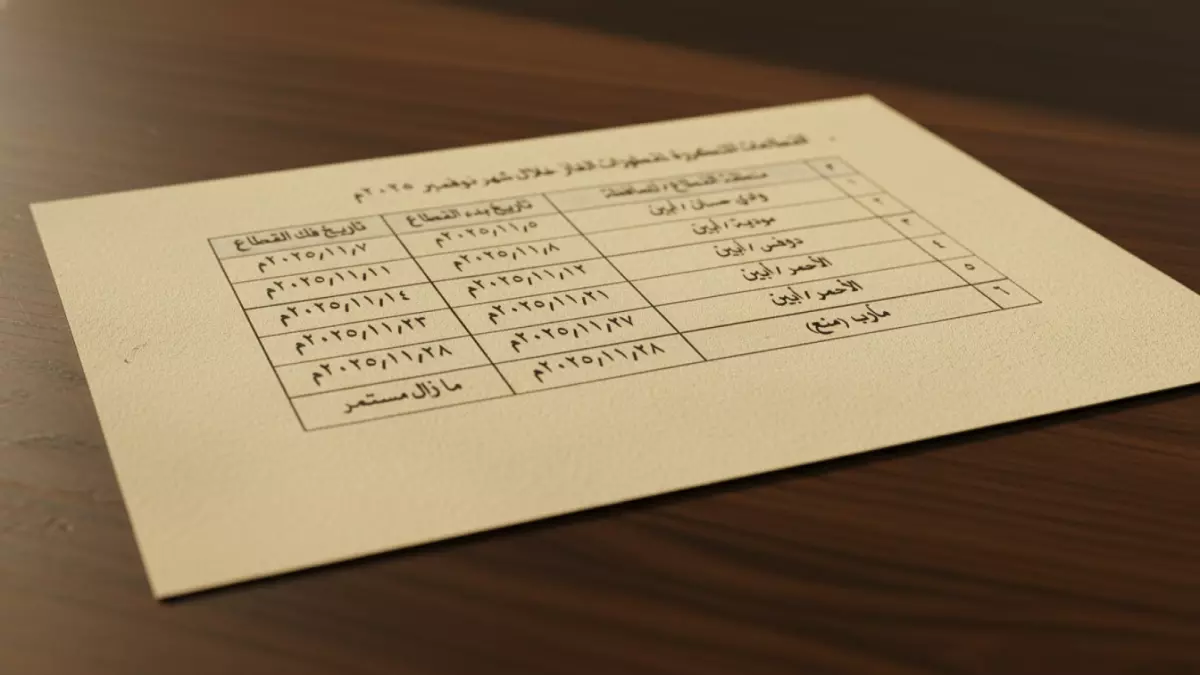 القطاعات المتكررة لمقطورات الغاز خلال شهر نوفمبر ٢٠٢٥م
م منطقة القطاع / المحافظة تاريخ بدء القطاع تاريخ فك القطاع
١ وادي حسان / أبين ٢٠٢٥٫١١٫٥م ٢٠٢٥٫١١٫٧م
٢ مودية / أبين ٢٠٢٥٫١١٫٨م ٢٠٢٥٫١١٫١١م
٣ دوفس / أبين ٢٠٢٥٫١١٫١٢م ٢٠٢٥٫١١٫١٤م
٤ الأحمر / أبين ٢٠٢٥٫١١٫٢١م ٢٠٢٥٫١١٫٢٣م
٥ الأحمر / أبين ٢٠٢٥٫١١٫٢٧م ٢٠٢٥٫١١٫٢٨م
٦ مأرب (منع) ٢٠٢٥٫١١٫٢٨م ما زال مستمر